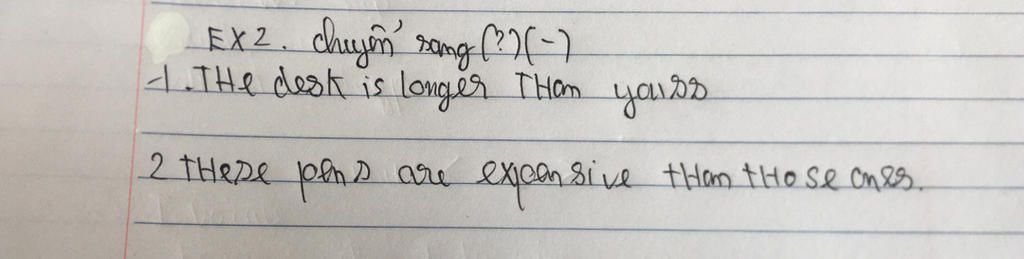 EX2. chuyển sang (?)(-)
1. THe desk is longer THan yours
2 tHese pens are expensive tHan tHose ones.